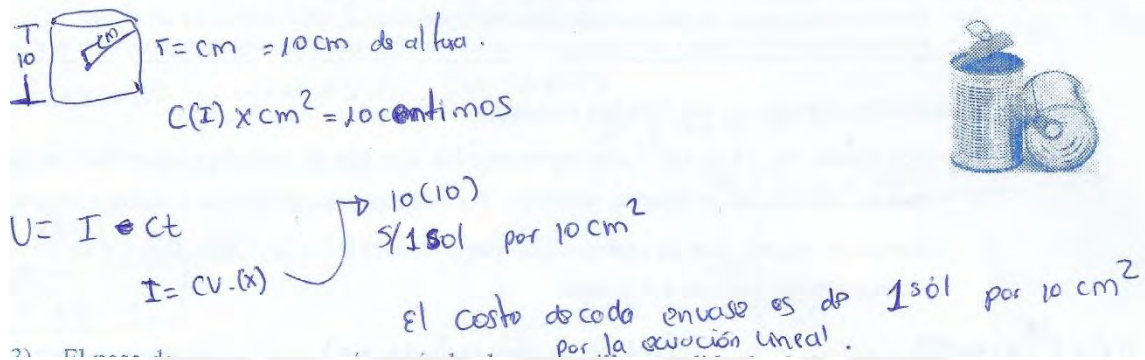 T
10
cm
r = cm = 10 cm de altura.
C(I) x cm² = 10 centimos
U = I • Ct
I = CV.(x)
10(10)
S/1 sol por 10 cm²
El costo de cada envase es de 1 sól por 10 cm²
por la ecuación lineal.
2)